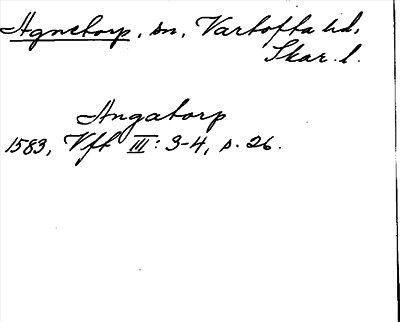 Agnetorp, sn, Vartofta hd,
Skar. l.
Angatorp
1583, Vft III: 3-4, s. 26.